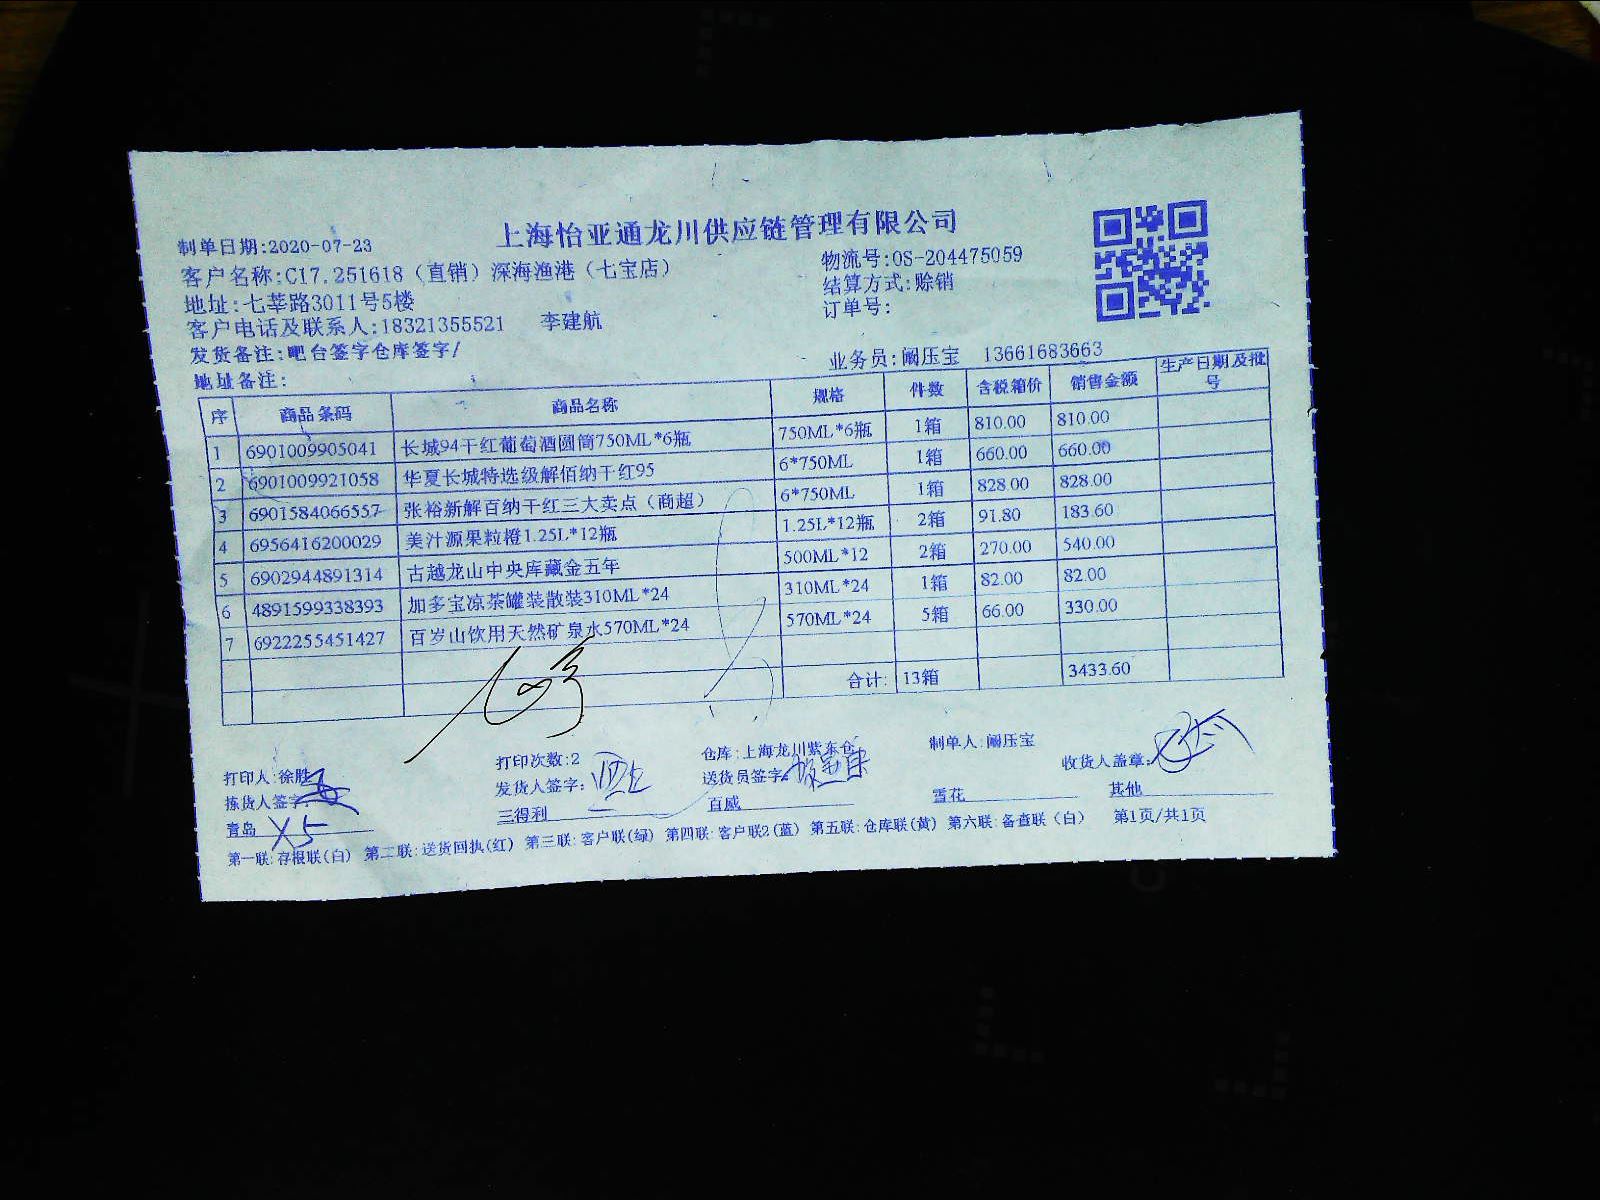 上海怡亚通龙川供应链管理有限公司
制单日期:2020-07-23
客户名称:C17.251618（直销）深海渔港（七宝店） 物流号:OS-204475059
地址:七莘路3011号5楼 结算方式:赊销
客户电话及联系人:18321355521 李建航 订单号:
发货备注:吧台签字仓库签字/ 业务员:阚压宝 13661683663
地址备注:
序 商品条码 商品名称 规格 件数 含税箱价 销售金额 生产日期及批号
1 6901009905041 长城94干红葡萄酒圆筒750ML*6瓶 750ML*6瓶 1箱 810.00 810.00
2 6901009921058 华夏长城特选级解佰纳干红95 6*750ML 1箱 660.00 660.00
3 6901584066557 张裕新解百纳干红三大卖点（商超） 6*750ML 1箱 828.00 828.00
4 6956416200029 美汁源果粒橙1.25L*12瓶 1.25L*12瓶 2箱 91.80 183.60
5 6902944891314 古越龙山中央库藏金五年 500ML*12 2箱 270.00 540.00
6 4891599338393 加多宝凉茶罐装散装310ML*24 310ML*24 1箱 82.00 82.00
7 6922255451427 百岁山饮用天然矿泉水570ML*24 570ML*24 5箱 66.00 330.00
合计: 13箱 3433.60
打印人:徐胜 打印次数:2 仓库:上海龙川紫东仓 制单人:阚压宝 收货人盖章:
拣货人签字: 发货人签字: 送货员签字:
青岛 X5 三得利 百威 雪花 其他
第一联:存根联(白) 第二联:送货回执(红) 第三联:客户联(绿) 第四联:客户联2(蓝) 第五联:仓库联(黄) 第六联:备查联(白) 第1页/共1页